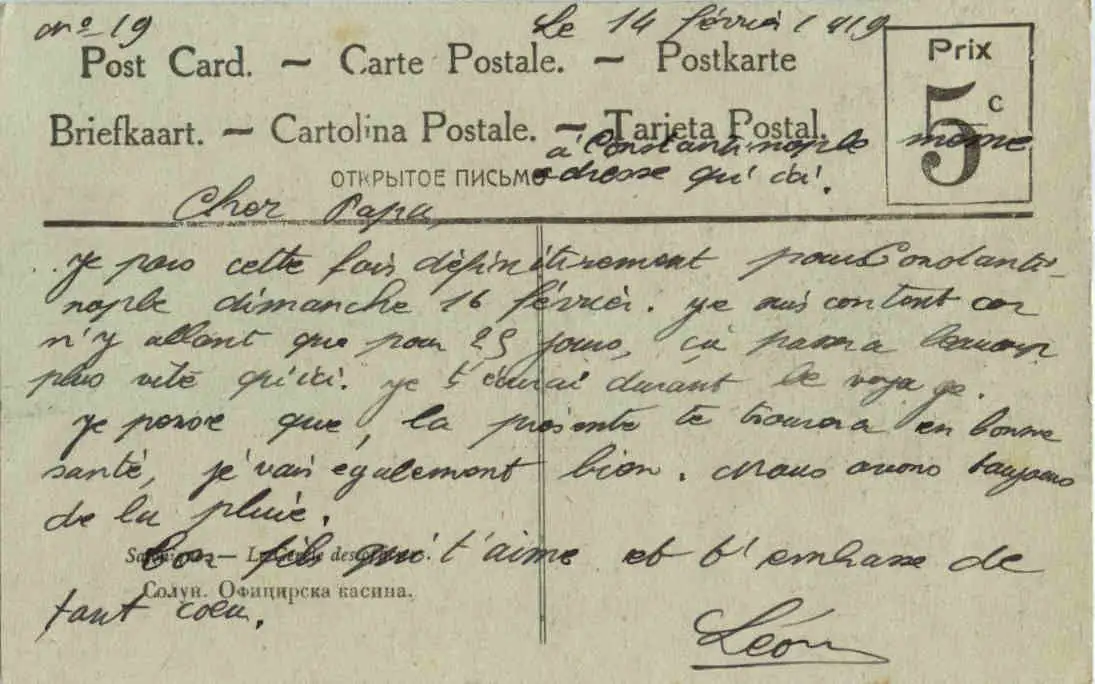 n° 19 Le 14 février 1919
Post Card. — Carte Postale. — Postkarte
Prix
5 c
Briefkaart. — Cartolina Postale. — Tarjeta Postal.
à Constantinople même
ОТКРЫТОЕ ПИСЬМО adresse qu'ici.
Cher Papa,
Je pars cette fois définitivement pour Constanti-
nople dimanche 16 février. Je suis content car
n'y allant que pour 25 jours, ça passera beaucoup
plus vite qu'ici. Je t'écrirai durant le voyage.
Je pense que, la présente te trouvera en bonne
santé, je vais également bien. Nous avons toujours
de la pluie.
Salonique — Le Cercle des
Ton fils qui t'aime et t'embrasse de
Солун. Официрска касина.
tout coeur.
Léon